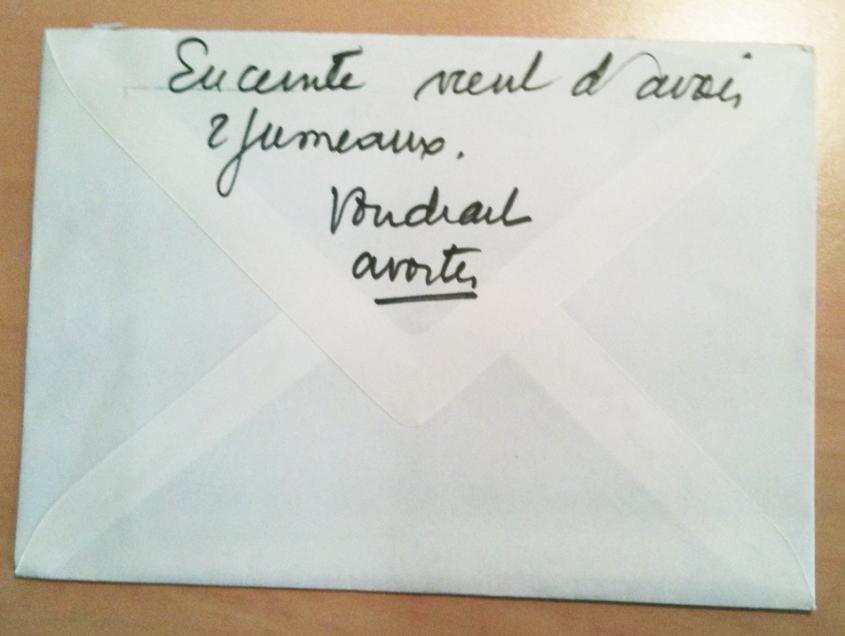 Enceinte vient d'avoir
2 jumeaux.
Voudrait
avorter